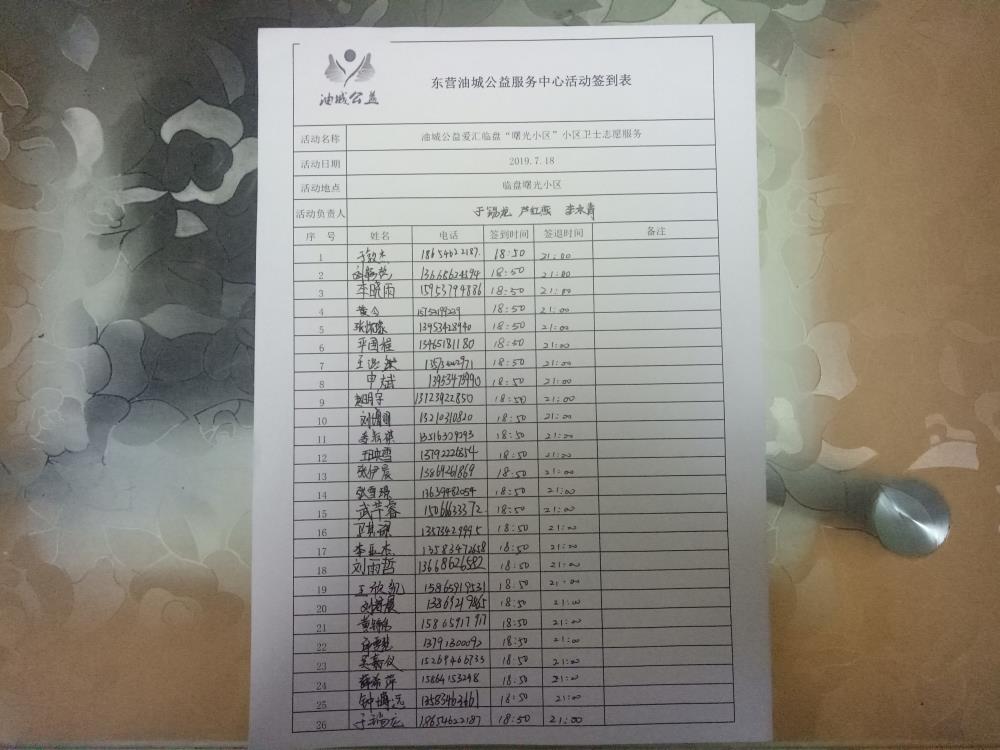 油城公益
东营油城公益服务中心活动签到表
活动名称 油城公益爱汇临盘“曙光小区”小区卫士志愿服务
活动日期 2019.7.18
活动地点 临盘曙光小区
活动负责人 于锡龙 芦红燕 李永青
序 号 姓名 电话 签到时间 签退时间 备注
1 18654622187 18:50 21:00
2 18:50 21:00
3 李晓雨 15953794886 18:50 21:00
4 黄令 18:50 21:00
5 13953428940 18:50 21:00
6 平国程 13465181180 18:50 21:00
7 18:50 21:00
8 申斌 18:50 21:00
9 赵明宇 13123922850 18:50 21:00
10 13210310820 18:50 21:00
11 18:50 21:00
12 王映雪 18:50 21:00
13 张伊晨 18:50 21:00
14 张雪璟 13639482054 18:50 21:00
15 武芊睿 15066633372 18:50 21:00
16 13573429995 18:50 21:00
17 13583472658 18:50 21:00
18 刘雨哲 13668626582 18:50 21:00
19 王欣凯 15865919531 18:50 21:00
20 18:50 21:00
21 15865917917 18:50 21:00
22 13791300092 18:50 21:00
23 吴嘉仪 15269466733 18:50 21:00
24 薛希萍 15864153248 18:50 21:00
25 钟博远 13583463661 18:50 21:00
26 于锡龙 18654622187 18:50 21:00